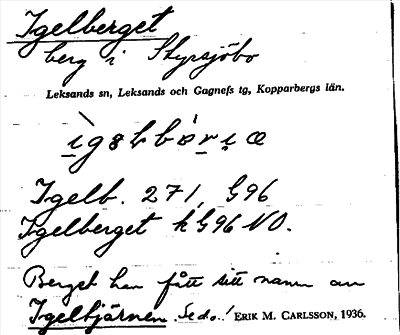 Igelberget
berg i Styrsjöbo
Leksands sn, Leksands och Gagnefs tg, Kopparbergs län.
Igelb. 271, G96
Igelberget k G96 NO.
Berget har fått sitt namn av
Igeltjärnen. Se d.o.! ERIK M. CARLSSON, 1936.